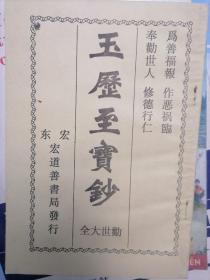 為善福報 作惡祸臨
奉勸世人 修德行仁
玉歷至寶鈔
勸世大全
宏东
宏道善書局發行